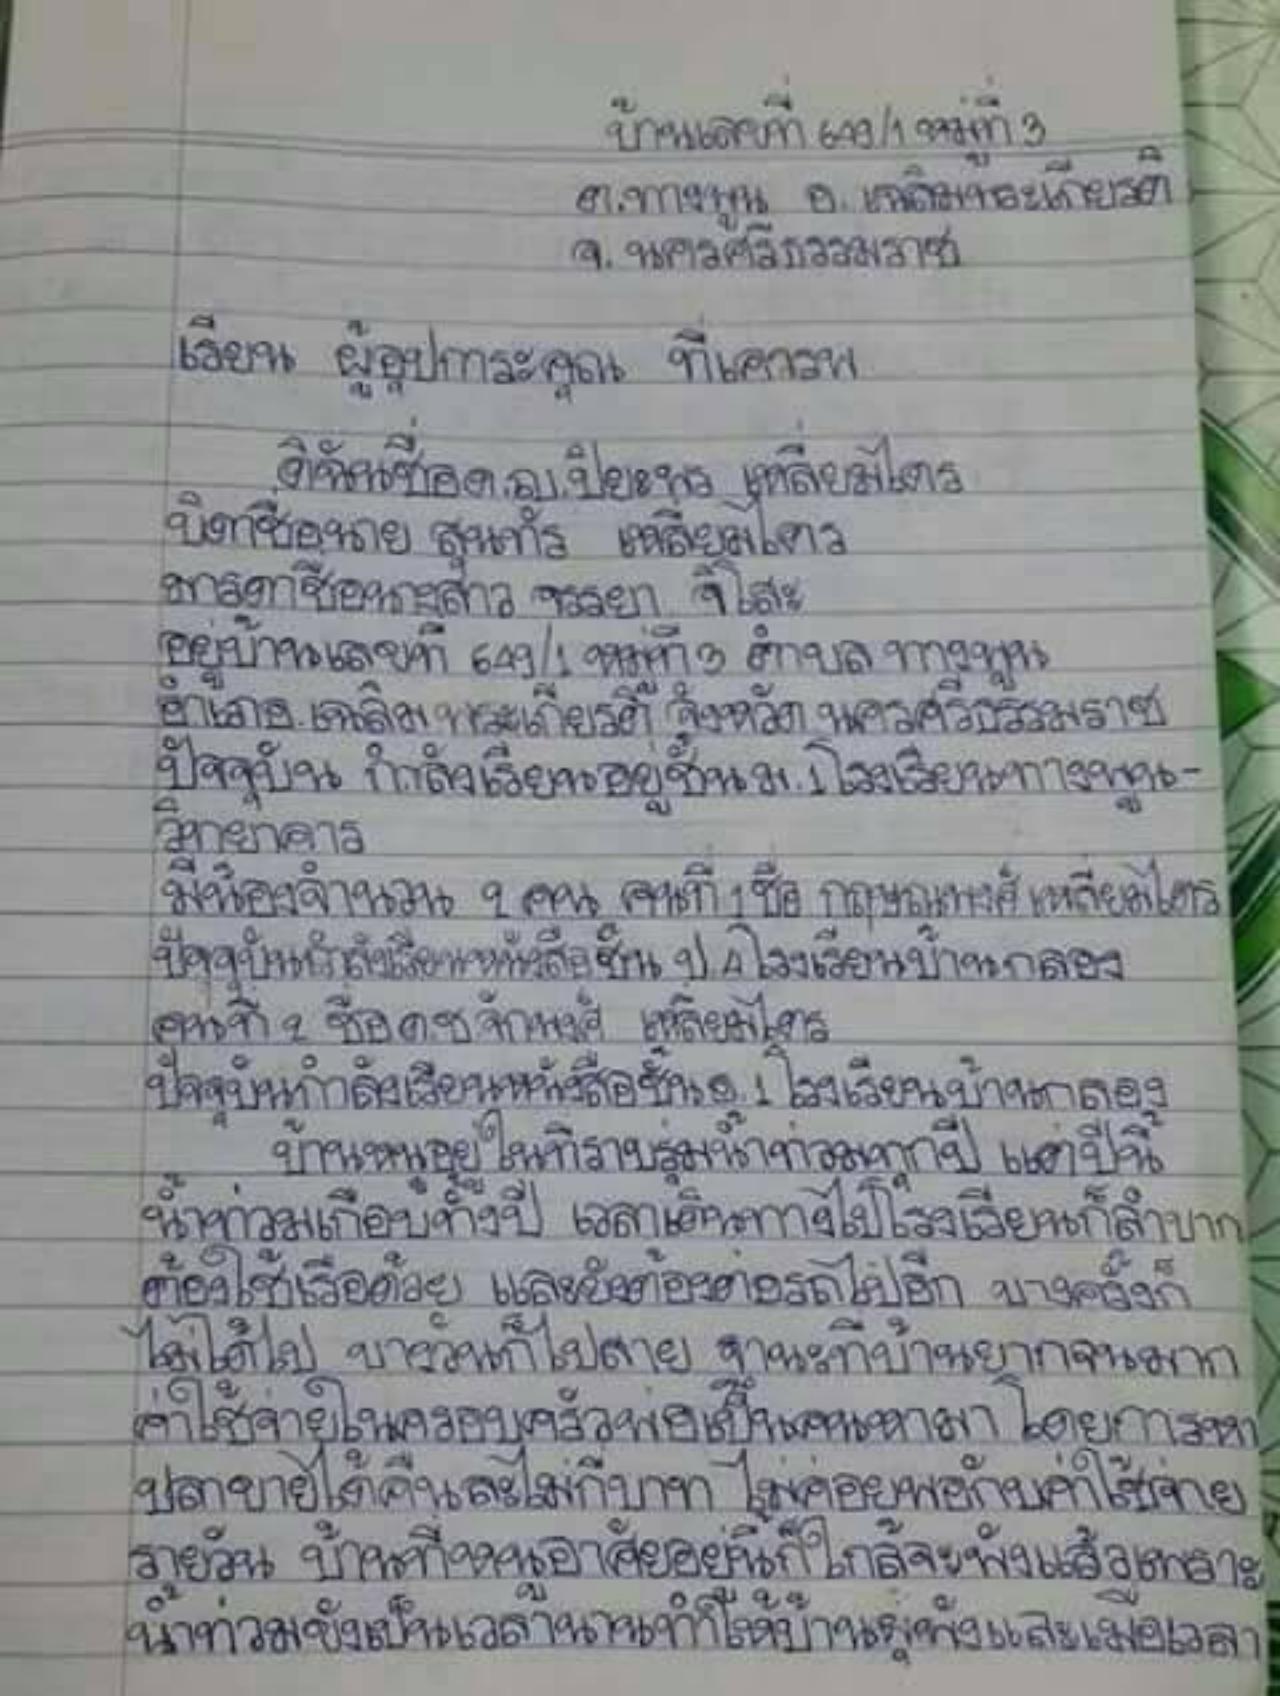 บ้านเลขที่ 649/1 หมู่ที่ 3
ต.ทางพูน อ. เฉลิมพระเกียรติ
จ. นครศรีธรรมราช
เรียน ผู้อุปการะคุณ ที่เคารพ
ดิฉันชื่อด.ญ.ปิยะพร เหลี่ยมไตร
บิดาชื่อนาย สุนทัร เหลี่ยมไตร
มารดาชื่อนางสาว จรรยา จิโสะ
อยู่บ้านเลขที่ 649/1 หมู่ที่ 3 ตำบล ทางพูน
อำเภอ.เฉลิมพระเกียรติ จังหวัด นครศรีธรรมราช
ปัจจุบัน กำลังเรียนอยู่ชั้นม.1 โรงเรียนทางพูน-
วิทยาคาร
มีน้องจำนวน 2 คน คนที่ 1 ชื่อ กฤษณพงศ์ เหลี่ยมไตร
ปัจจุบันกำลังเรียนหนังสือชั้น ป.4 โรงเรียนบ้านกลอง
คนที่ 2 ชื่อ ด.ช.จักพงศ์ เหลี่ยมไตร
ปัจจุบันกำลังเรียนหนังสือชั้นอ.1 โรงเรียนบ้านกลอง
บ้านหนูอยู่ในที่ราบรุ่มน้ำท่วมทุกปี แต่ปีนี้
น้ำท่วมเกือบทั้งปี เวลาเดินทางไปโรงเรียนก็ลำบาก
ต้องใช้เรือด้วย และยังต้องต่อรถไปอีก บางครั้งก็
ไม่ได้ไป บางวันก็ไปสาย ฐานะที่บ้านยากจนมาก
ค่าใช้จ่ายในครอบครัวพ่อเป็นคนหามา โดยการหา
ปลาขายได้คืนละไม่กี่บาท ไม่ค่อยพอกับค่าใช้จ่าย
รายวัน บ้านที่หนูอาศัยอยู่นี้ก็ใกล้จะพังแล้วเพราะ
น้ำท่วมขังเป็นเวลานานทำให้บ้านผุพังและเมื่อเวลา